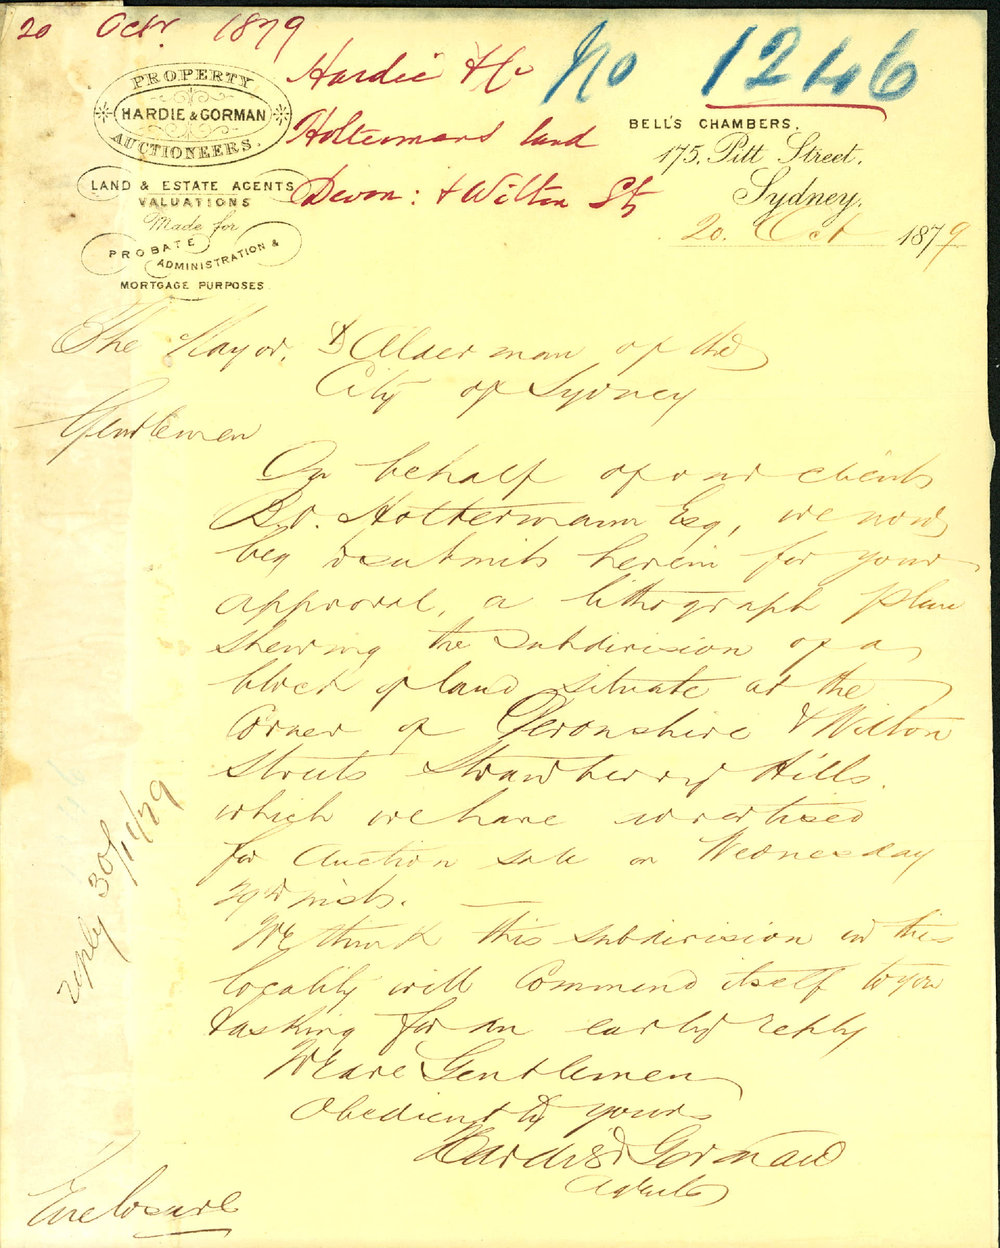 20 Octr. 1879
Hardie & Co
Holtermans land
Devon: & Wilton St
No 1246
PROPERTY
HARDIE & GORMAN
AUCTIONEERS.
LAND & ESTATE AGENTS
VALUATIONS
Made for
PROBATE
ADMINISTRATION &
MORTGAGE PURPOSES
BELL'S CHAMBERS,
175, Pitt Street,
Sydney,
20. Oct 1879
The Mayor, & Alderman of the
City of Sydney
Gentlemen
On behalf of our clients
B.O. Holtermann Esq, we now
beg to submit herein for your
approval, a lithograph plan
shewing the subdivision of a
block of land situate at the
Corner of Devonshire & Wilton
Streets Strawberry Hills.
which we have advertised
for Auction sale on Wednesday
29th inst.
We think this subdivision in this
locality will Commend itself to you
& asking for an early reply
We are Gentlemen
Obediently yours
Hardie & Gorman
Agents
Enclosure
reply 30/11/79